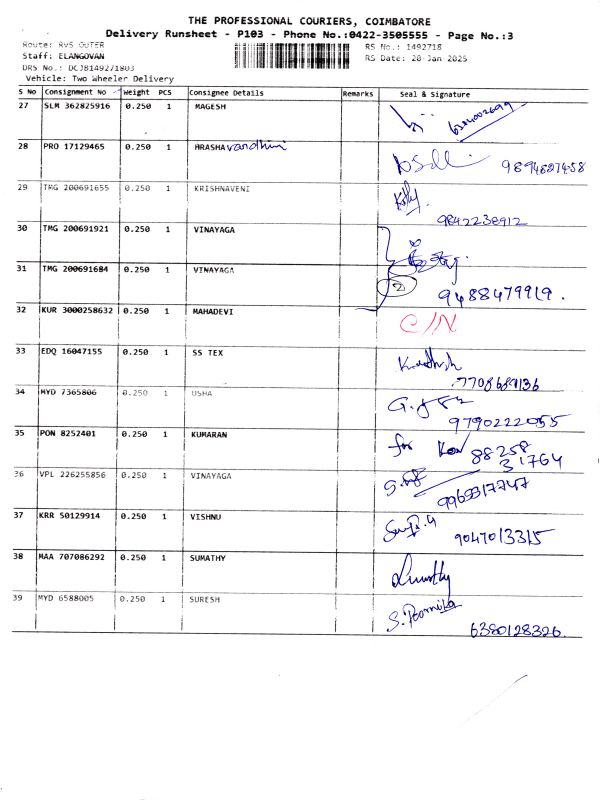 THE PROFESSIONAL COURIERS, COIMBATORE
Delivery Runsheet - P103 - Phone No.:0422-3505555 - Page No.:3
Route: RVS OUTER
RS No.: 1492718
Staff: ELANGOVAN
RS Date: 28-Jan-2025
DRS No.: DCJB149271803
Vehicle: Two Wheeler Delivery
S No Consignment No Weight PCS Consignee Details Remarks Seal & Signature
27 SLM 362825916 0.250 1 MAGESH
28 PRO 17129465 0.250 1 HRASHAvardhini
9894627458
29 TMG 200691655 0.250 1 KRISHNAVENI
9842238912
30 TMG 200691921 0.250 1 VINAYAGA
31 TMG 200691684 0.250 1 VINAYAGA
2
9488479919.
32 KUR 3000258632 0.250 1 MAHADEVI C/N
33 EDQ 16047155 0.250 1 SS TEX
34 MYD 7365806 0.250 1 USHA
9790222055
35 PON 8252401 0.250 1 KUMARAN for
88258
31764
36 VPL 226255856 0.250 1 VINAYAGA
37 KRR 50129914 0.250 1 VISHNU
9047013315
38 MAA 707086292 0.250 1 SUMATHY
39 MYD 6588005 0.250 1 SURESH
6380128326